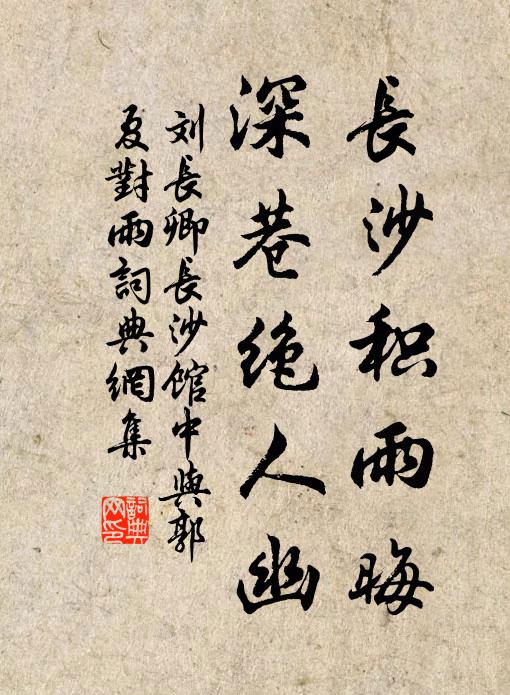 長沙积雨晦
深巷绝人幽
刘長卿長沙馆中與郭
夏對雨詞典網集
詞典
网印